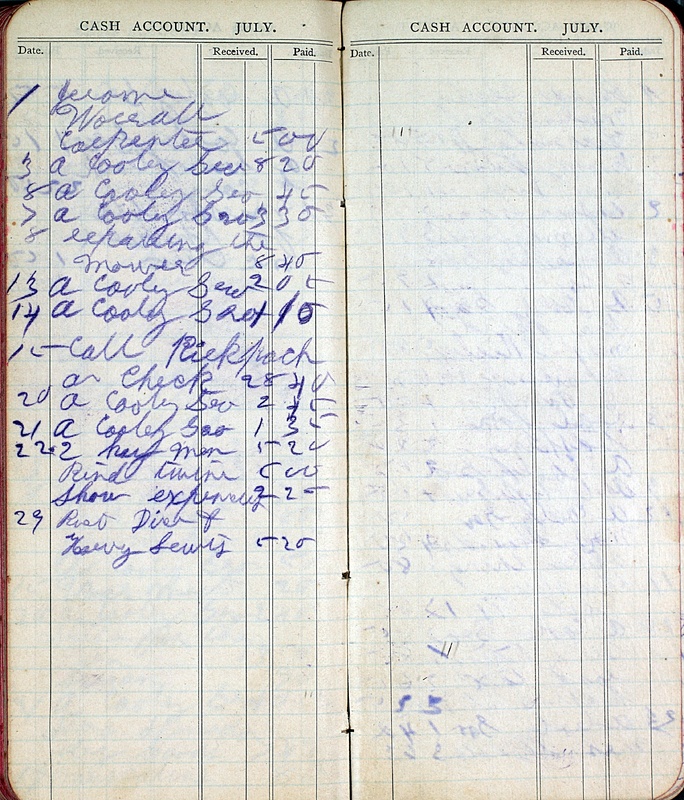 CASH ACCOUNT. JULY.
Date. Received. Paid.
1 Jerome
Worrall
Carpenter 5 00
3 a Cooley Geo 8 20
5 a Cooley Geo 45
7 a Cooley Geo 3 35
8 repairing the
mower 8 45
13 a Cooley Geo 2 05
14 a Cooley Geo 4 15
15 Call
a Check 28 40
20 a Cooley Geo 2 45
21 a Cooley Geo 1 35
22 2 hay men 5 20
Bind twine 5 00
Show expences 2 25
29 Post
Harry Lewis 5 25
CASH ACCOUNT. JULY.
Date. Received. Paid.